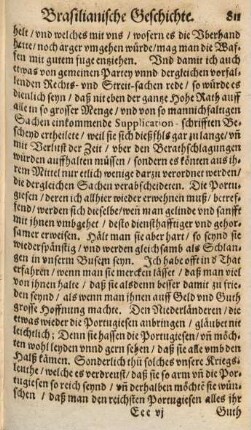 Brasilianische Geschichte. 811
helt / und welches mit vns / wofern es die Vberhand
hette / noch ärger vmgehen würde / mag man die Waf-
fen mit gutem fuge entziehen. Vnd damit ich auch
etwas von gemeinen Partey vnnd dergleichen vorfal-
lenden Rechts- und Streit-sachen rede / so würde es
dienlich seyn / daß nit eben der gantze Hohe Rath auff
alle in so grosser Menge / und von so mannichfaltigen
Sachen einkommende Supplication-schrifften Be-
scheyd ertheilete / weil sie sich dißfals gar zu lange / vñ
mit Verlust der Zeit / vber den Berathschlagungen
würden auffhalten müssen / sondern es könten aus ih-
rem Mittel nur etlich wenige darzu verordnet werden /
die dergleichen Sachen verabscheideten. Die Portu-
giesen / deren ich allhier wieder erwehnen muß / betref-
fend / werden sich dieselbe / weñ man gelinde und sanfft
mit ihnen vmbgehet / desto diensthafftiger vnd gehor-
samer erweisen. Hält man sie aber hart / so seynd sie
wiederspänstig / und werden gleichsamb als Schlan-
gen in vnserm Busem seyn. Ich habe offt in d That
erfahrẽ / wenn man sie mercken lässet / daß man viel
von ihnen halte / daß sie alsdenn besser damit zu frie-
den seynd / als wenn man ihnen auff Geld vnd Guth
grosse Hoffnung machte. Den Niederländeren / die
etwas wieder die Portugiesen anbringen / gläube nit
leichtlich; Denn sie hassen die Portugiesen / vñ möch-
ten wohl leyden vnnd gern sehen / daß sie alle vmb den
Halß kämen. Sonderlich thũ solches vnsere Kriegs-
leuthe / welche es verdreust / daß sie so arm vñ die Por-
tugiesen so reich seynd / vñ derhalben möchtẽ sie wün-
schen / daß man den reichsten Portugiesen alles ihr
Eee vj Guth